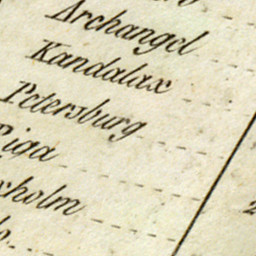 Archangel
Kandalax
Petersburg
iga
holm